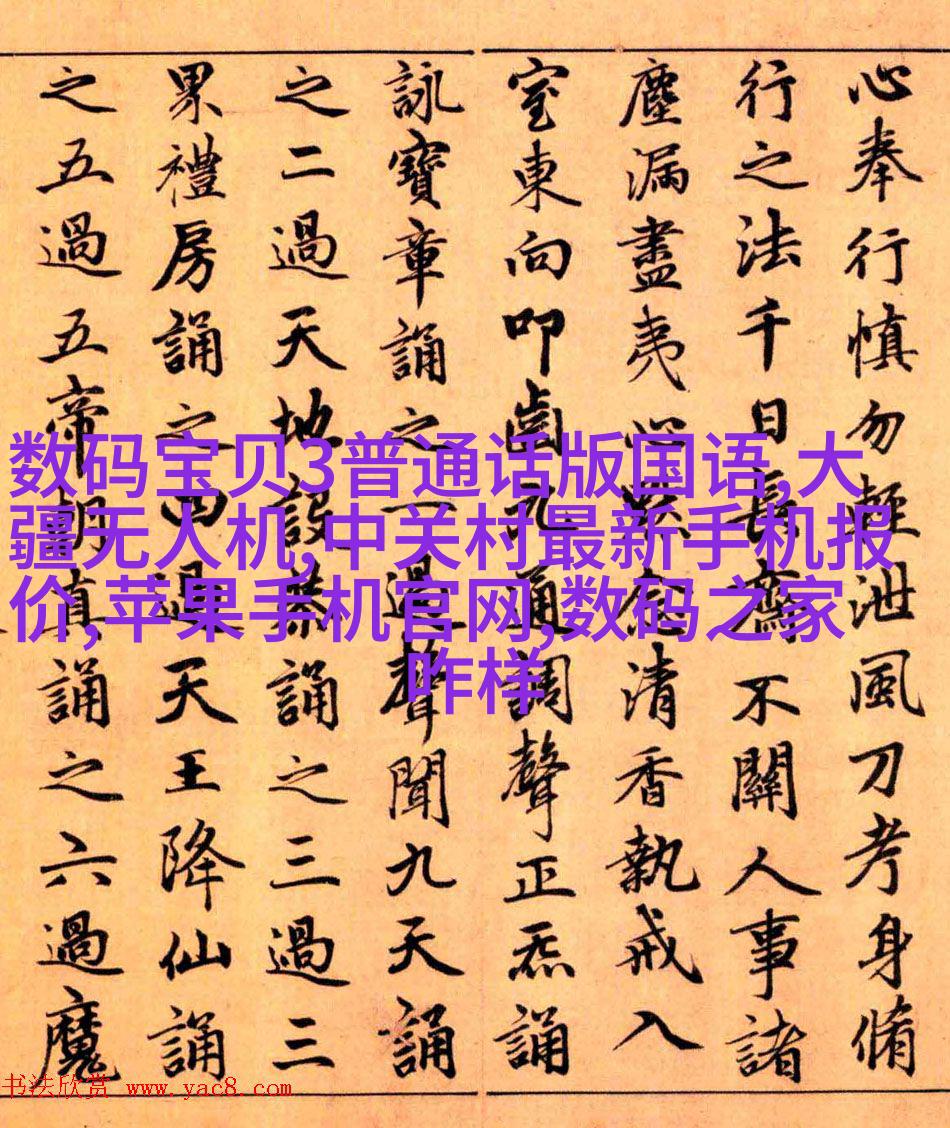 心奉行慎勿輕泄風刀考身脩
行之法千日長齋不關人事諸
塵漏盡夷心念清香執戒入
室東向叩齒九通調聲正炁誦
詠寶章誦之一過聲聞九天誦
之二過天地設恭誦之三過三
累禮房誦之四過天王降仙誦
之五過五帝朝真誦之六過魔
数码宝贝3普通话版国语,大
疆无人机,中关村最新手机报
价,苹果手机官网,数码之家
咋样
书法欣赏 www.yac8.com